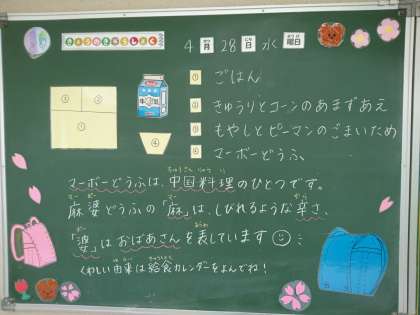 きょうのきゅうしょく
4月28日水曜日
① ごはん
② きゅうりとコーンのあまずあえ
③ もやしとピーマンのごまいため
④ マーボーどうふ
③ ②
①
④
牛乳
マーボーどうふは、中国料理のひとつです。
麻婆どうふの「麻」は、しびれるような辛さ、
「婆」はおばあさんを表しています
くわしい由来は給食カレンダーをよんでね!